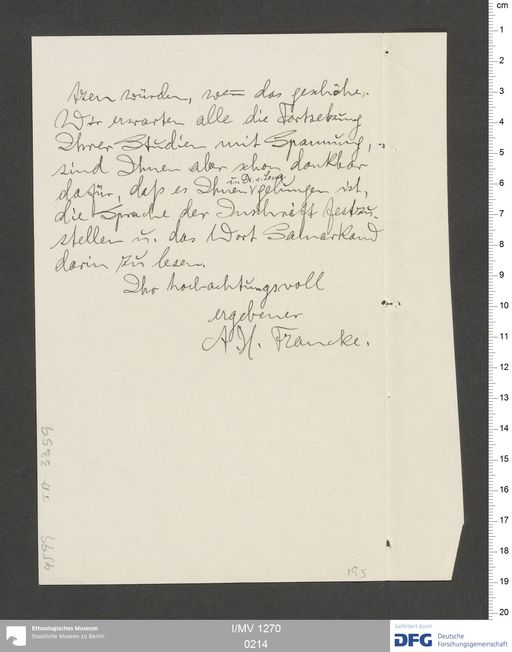 tzen würden, wenn das geschähe.
Wir erwarten alle die Fortsetzung
Ihrer Studien mit Spannung,
sind Ihnen aber schon dankbar
dafür, daß es Ihnen u. Dr. v. Lecoq gelungen ist,
die Sprache der Inschrift festzu-
stellen u. das Wort Samarkand
darin zu lesen.
Ihr hochachtungsvoll
ergebener
A. H. Francke.
TA 3359
4599
195
cm
1
2
3
4
5
6
7
8
9
10
11
12
13
14
15
16
17
18
19
20
Ethnologisches Museum
Staatliche Museen zu Berlin
I/MV 1270
0214
Gefördert durch
DFG Deutsche
Forschungsgemeinschaft